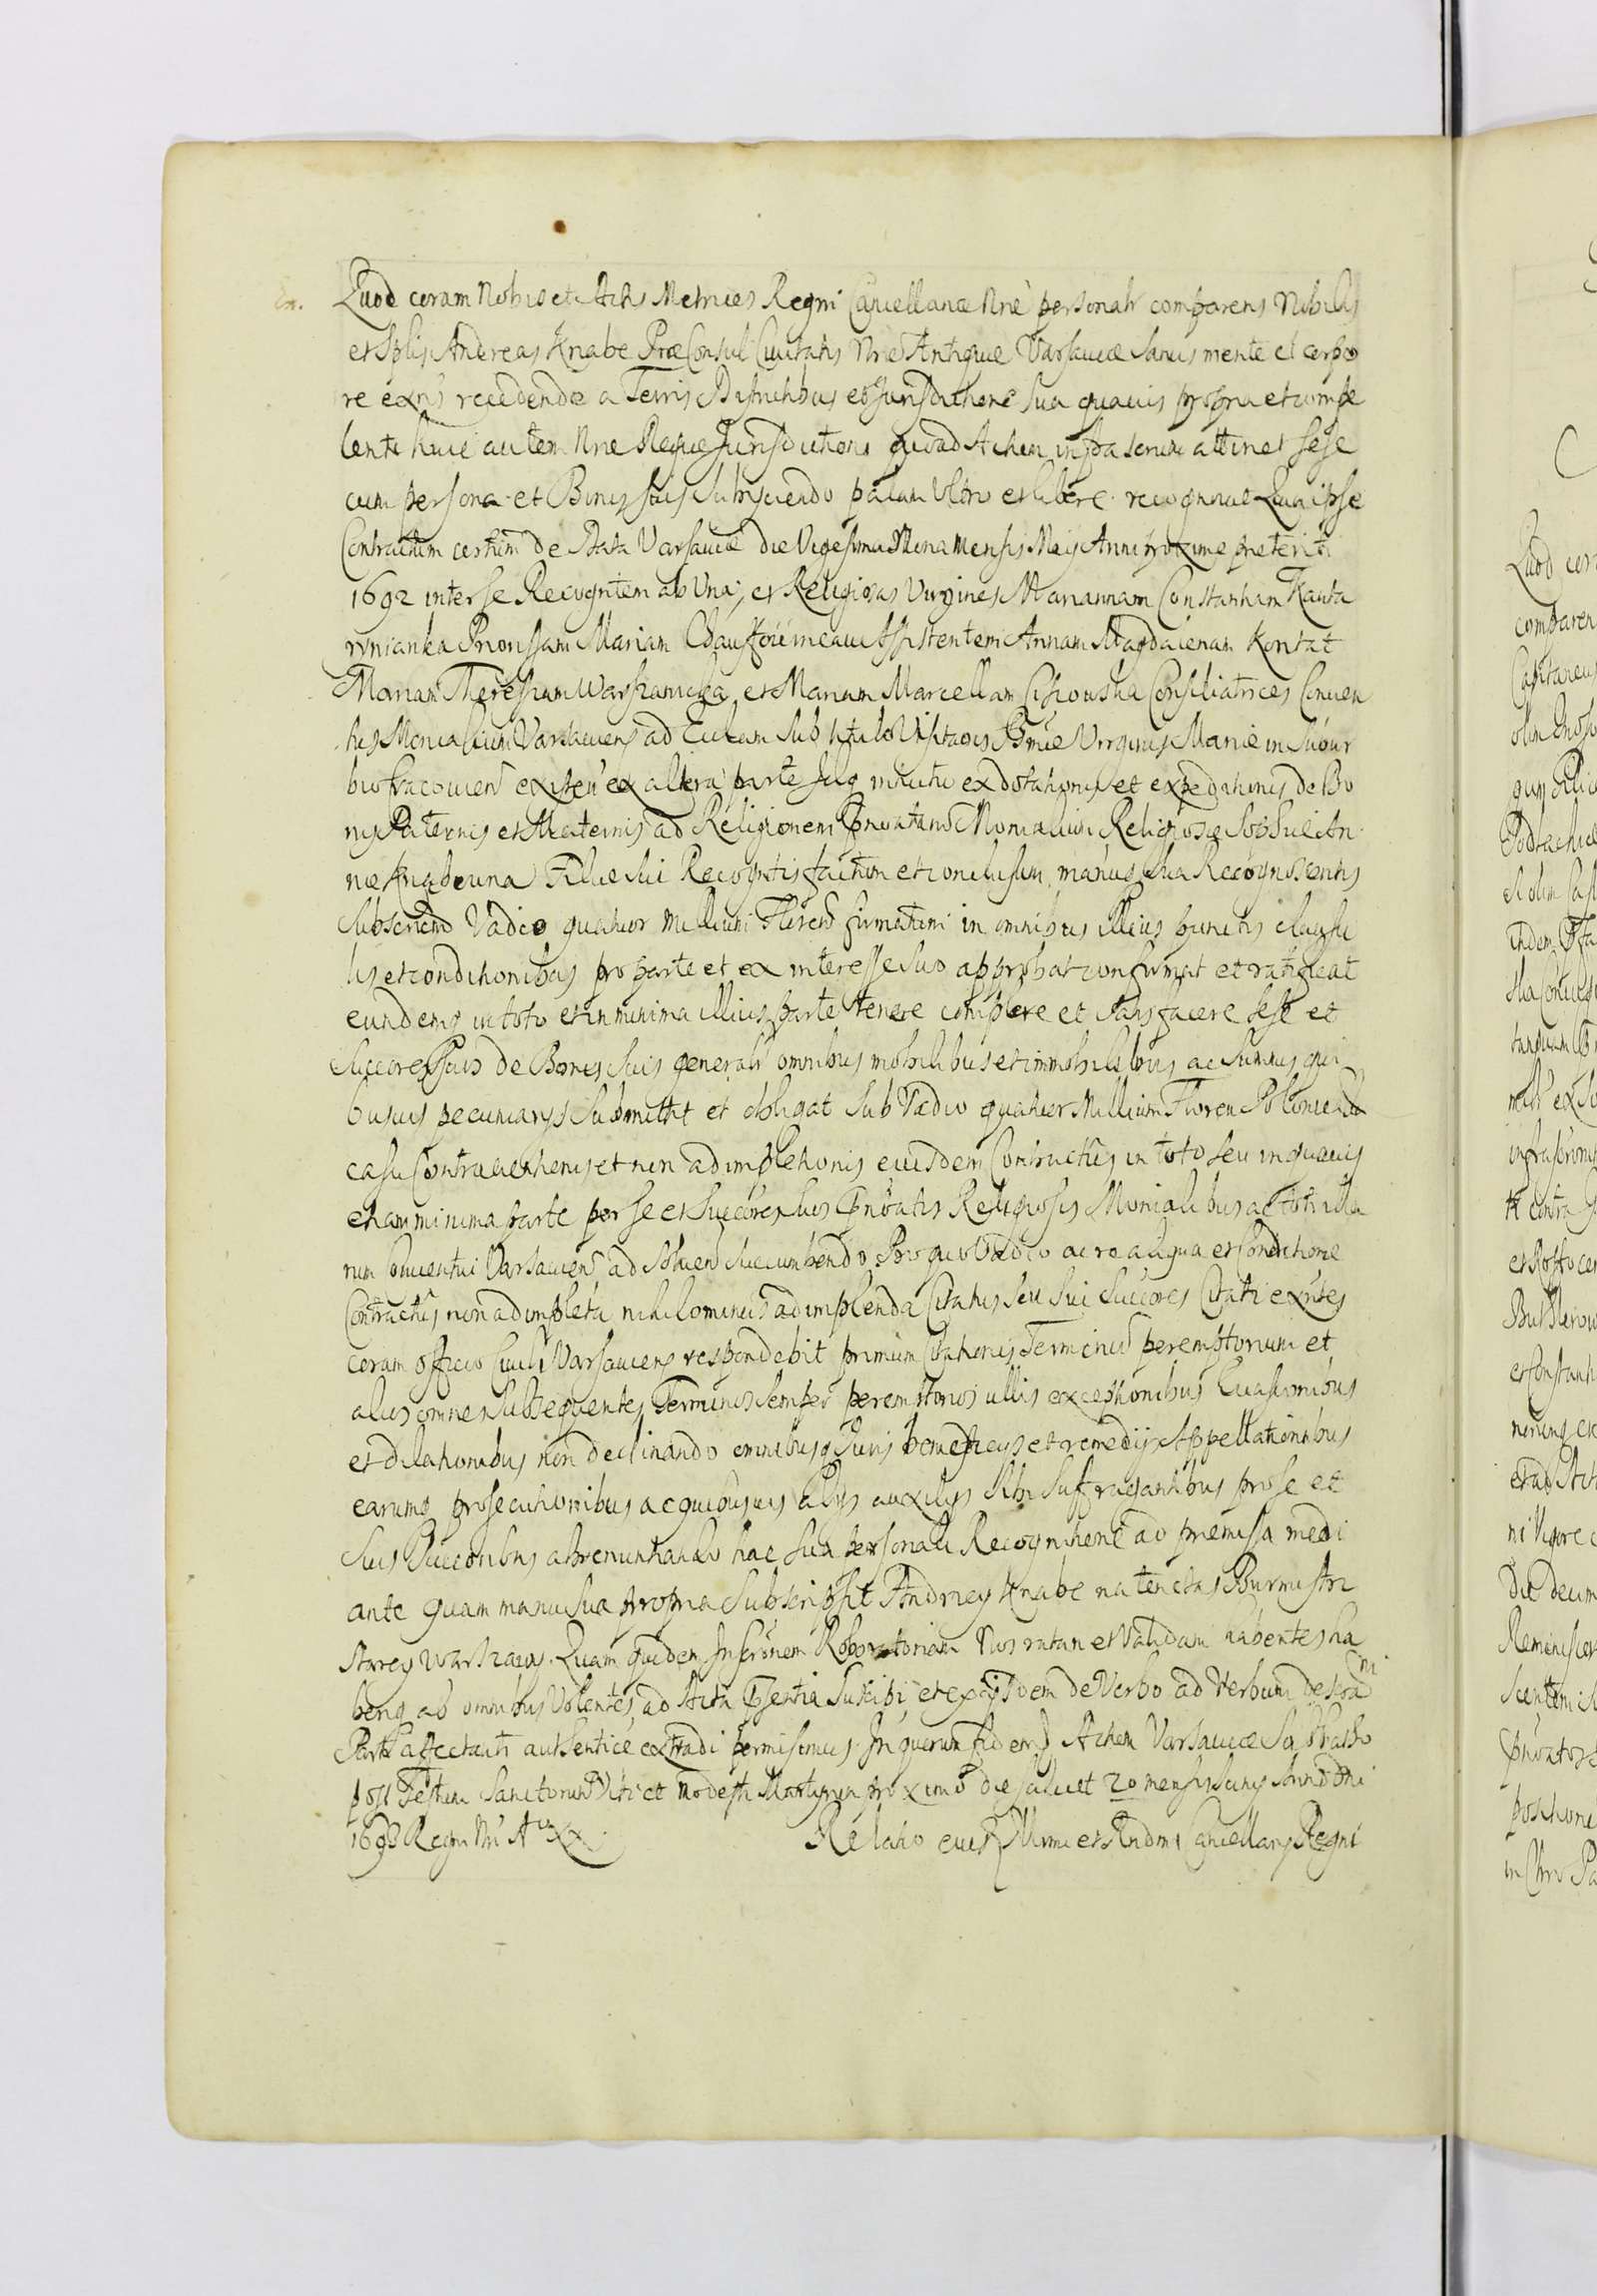 Quod coram Nobis et Actis Metrices Regni Cancellariæ Nrê personalr comparens Nobilis
et Splis Andreas Knabe PræConsul Civitatis Nrê Antiquæ Varsaviæ Sanus mente et corpo
re exñs recedendo a Terris Districtibus et Jurisdictione Sua quavis propria et compe
tenti huic autem Nrê Regiæ Jurisdictioni quoad Actum infrascrum attinet sese
cum persona et Bonis suis subijciendo palam libere et libere recognovit Quia ipse
Contractum certum de Data Varsaviæ die Vigesima Nona Mensis Maij Anni proxime præteriti
1692 inter se Recogntem ab Una, et Religiosas Virgines Mariannam Constantiam Kanta
rynianka Priorissam Mariam Assistentem Annam Magdalenam Kontat
Mariam Theressiam Warszawicka, et Mariam Marcellam Cisrowska Consiliatrices Conven
tus Monialium Varsaviens ad Ecclam sub titulo Visitaois Bmæ Virginis Mariæ in Subur
bio Cracovien existen ex altera parte Ssq intuitu exdotationis et expeditionis de Bo
nis Paternis et Maternis ad Religionem Pnvatarũ Monialium Religiosæ Sophiæ An
næ Knabeuna Filiæ Sui Recogntis factum et conclusum, manus sua Recognoscentis
Subscriend Vadio quatuor Millium Floren firmatum in omnibus illius punctis clausu
lis et conditionibus pro parte et ex interesse suo approbat confirmat et ratificat
eundemq in toto et in minima illius parte tenere complere et satisfacere sese et
Succores suos de Bonis suis generalr omnibus mobilibus et immobilibus ac Summis qui
busvis pecuniarijs Submittit et obligat sub Vadio quatuor Millium Floren Polonic
casu Contraventionis et non adimpletionis eiusdem Contractus in toto seu in quavis
etiam minima parte per se et Succores suos Pnvatis Religiosis Monialibus ac toti illa
rum Conventui Varsaviens ad solven succumbendo Pro quo Vadio ac re aliqua et Conditione
Contractus non adimpleta nihilominus adimplenda Citatus seu sui Succores Citati exñtes
coram Officio Civili Varsaviens respondebit primum Citationis Terminũ peremptorium et
alios omnes subsequentes Terminos semper peremptorios ullis exceptionibus Evasionibus
et dilationibus non declinando omnibusq Juris beneficijs et remedijs Appellationibus
earumq prosecutionibus ac quibusvis alijs auxilijs sibi suffragantibus pro se et
suis Succoribus abrenuntiando hac sua personali Recognitione ad præmissa medi
ante Quam manu sua propria Subscripsit Andrzey Knabe na ten czas Burmistrz
Starey Warszawy. Quam quidem Inscrionem Roboratoriam Nos ratam et Validam habentes ha
beriq ab omnibus Volentes, ad Acta Pñsentia Suscipi et ex ijsdem de Verbo ad Verbum descri
Parti affectanti authenticè extradi permisimus. In quorum fidem Actum Varsaviæ Sabbatho
post Festum Sanctorum Viti et Modesti Martyrum proximo die scilicet 20 mensis Junij Anno Dni
1693 Regni Nri Ao XX. Relatio eius Illmi et Rndmi Cancellarij Regni